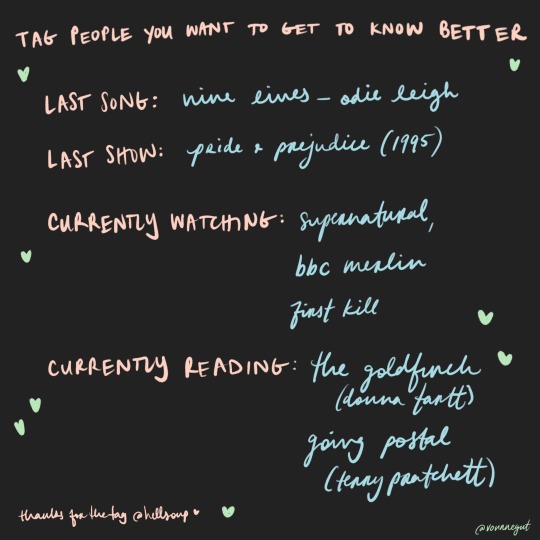 TAG PEOPLE YOU WANT TO GET TO KNOW BETTER
LAST SONG: nine lives – odie leigh
LAST SHOW: pride & prejudice (1995)
CURRENTLY WATCHING: supernatural,
bbc merlin
first kill
CURRENTLY READING: the goldfinch
(donna tartt)
going postal
(terry pratchett)
thanks for the tag @hellsoup
@vounnegut